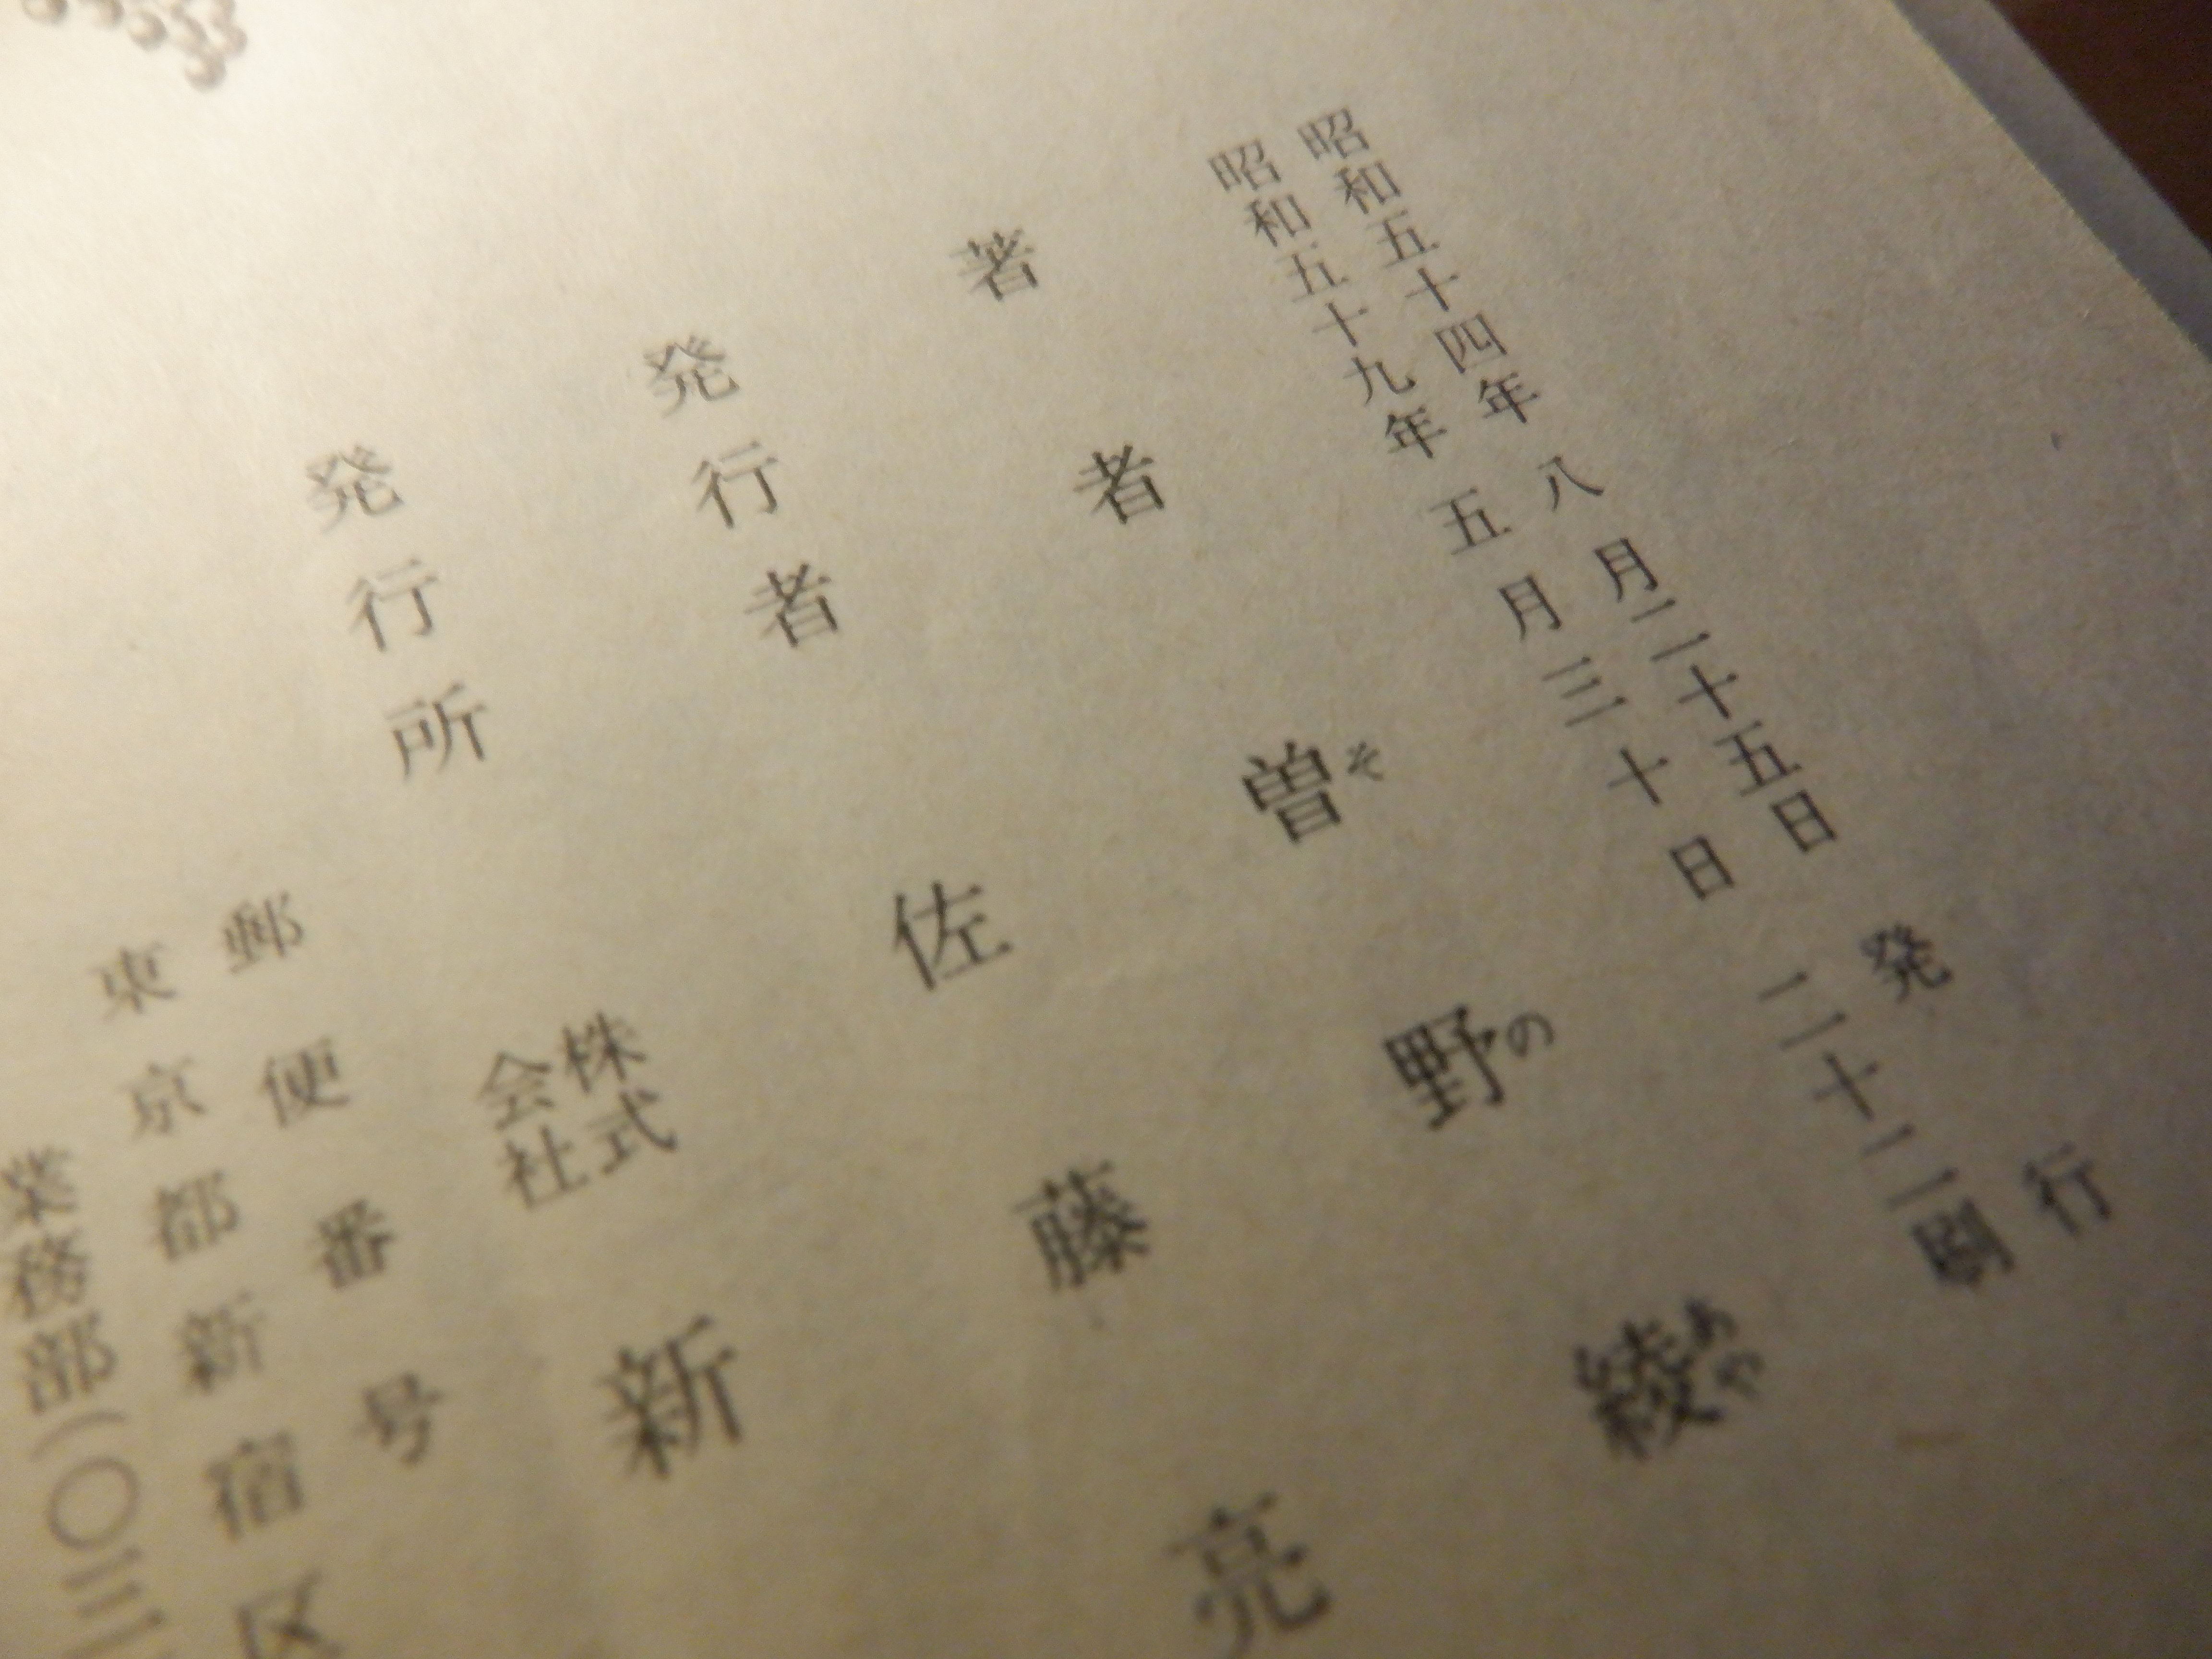 昭和五十四年八月二十五日発行
昭和五十九年五月三十日二十二刷
著者 曽野綾
そ の あや
発行者 佐藤亮
発行所 株式会社 新
郵便番号
東京都新宿区
業務部(〇三